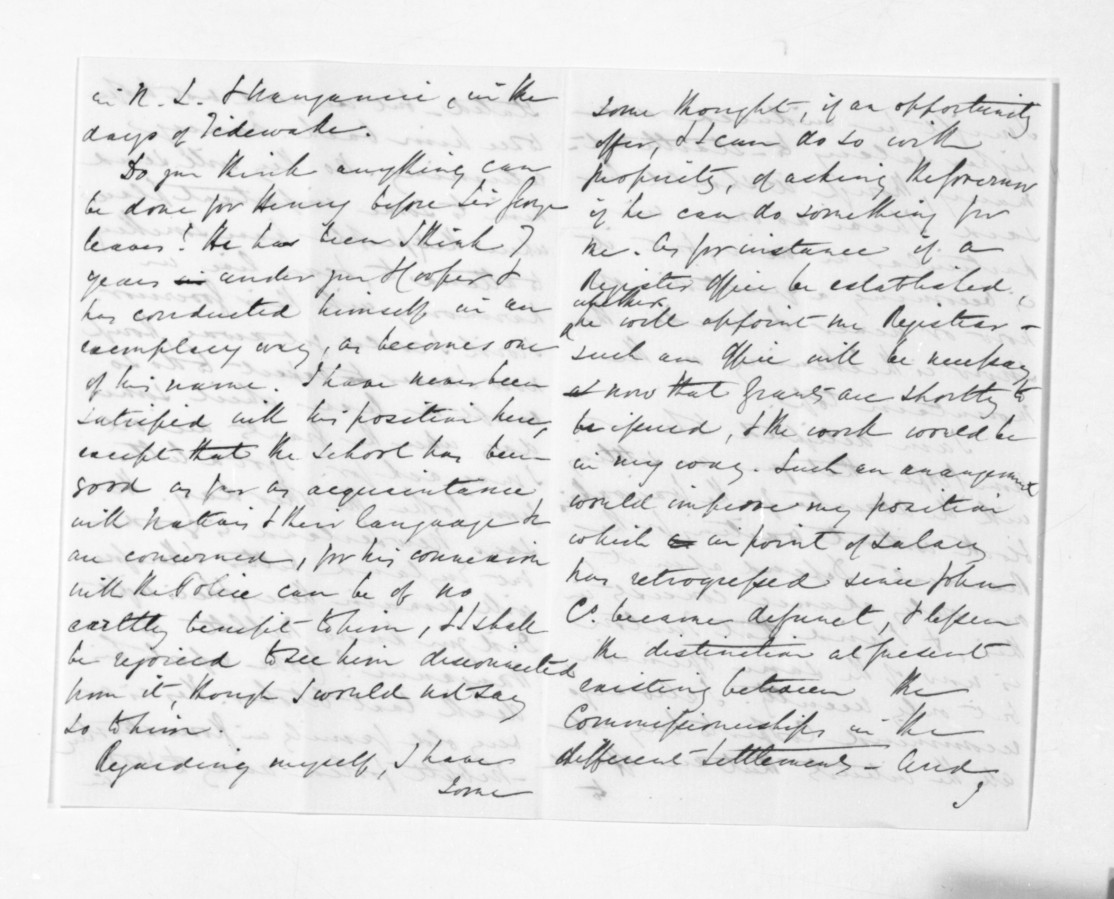 in N. Z. & Wanganui, in the
days of Tidewake.
Do you think anything can
be done for Henry before Sir George
leaves? He has been I think 7
years in under you & Cooper &
has conducted himself in an
exemplary way, as becomes one
of his name. I have never been
satisfied with his position here,
except that the school has been
good as far as acquaintance
with Natives & their language &c
are concerned, for his connexion
with the Police can be of no
earthly benefit to him, & I shall
be rejoiced to see him disconnected
from it, though I would not say
so to him.
Regarding myself, I have
some
some thought, if an opportunity
offer, & I can do so with
propriety, of asking the Governor
if he can do something for
me. As for instance if a
Register Office be established,
whether
he will appoint me Registrar -
such an Office will be necessary
as now that Grants are shortly to
be issued, & the work would be
in my way. Such an arrangement
would improve my position
which is in point of salary
has retrogressed since John
C. became defunct, & lessen
the distinction at present
existing between the
Commissionerships in the
different Settlements - And
I